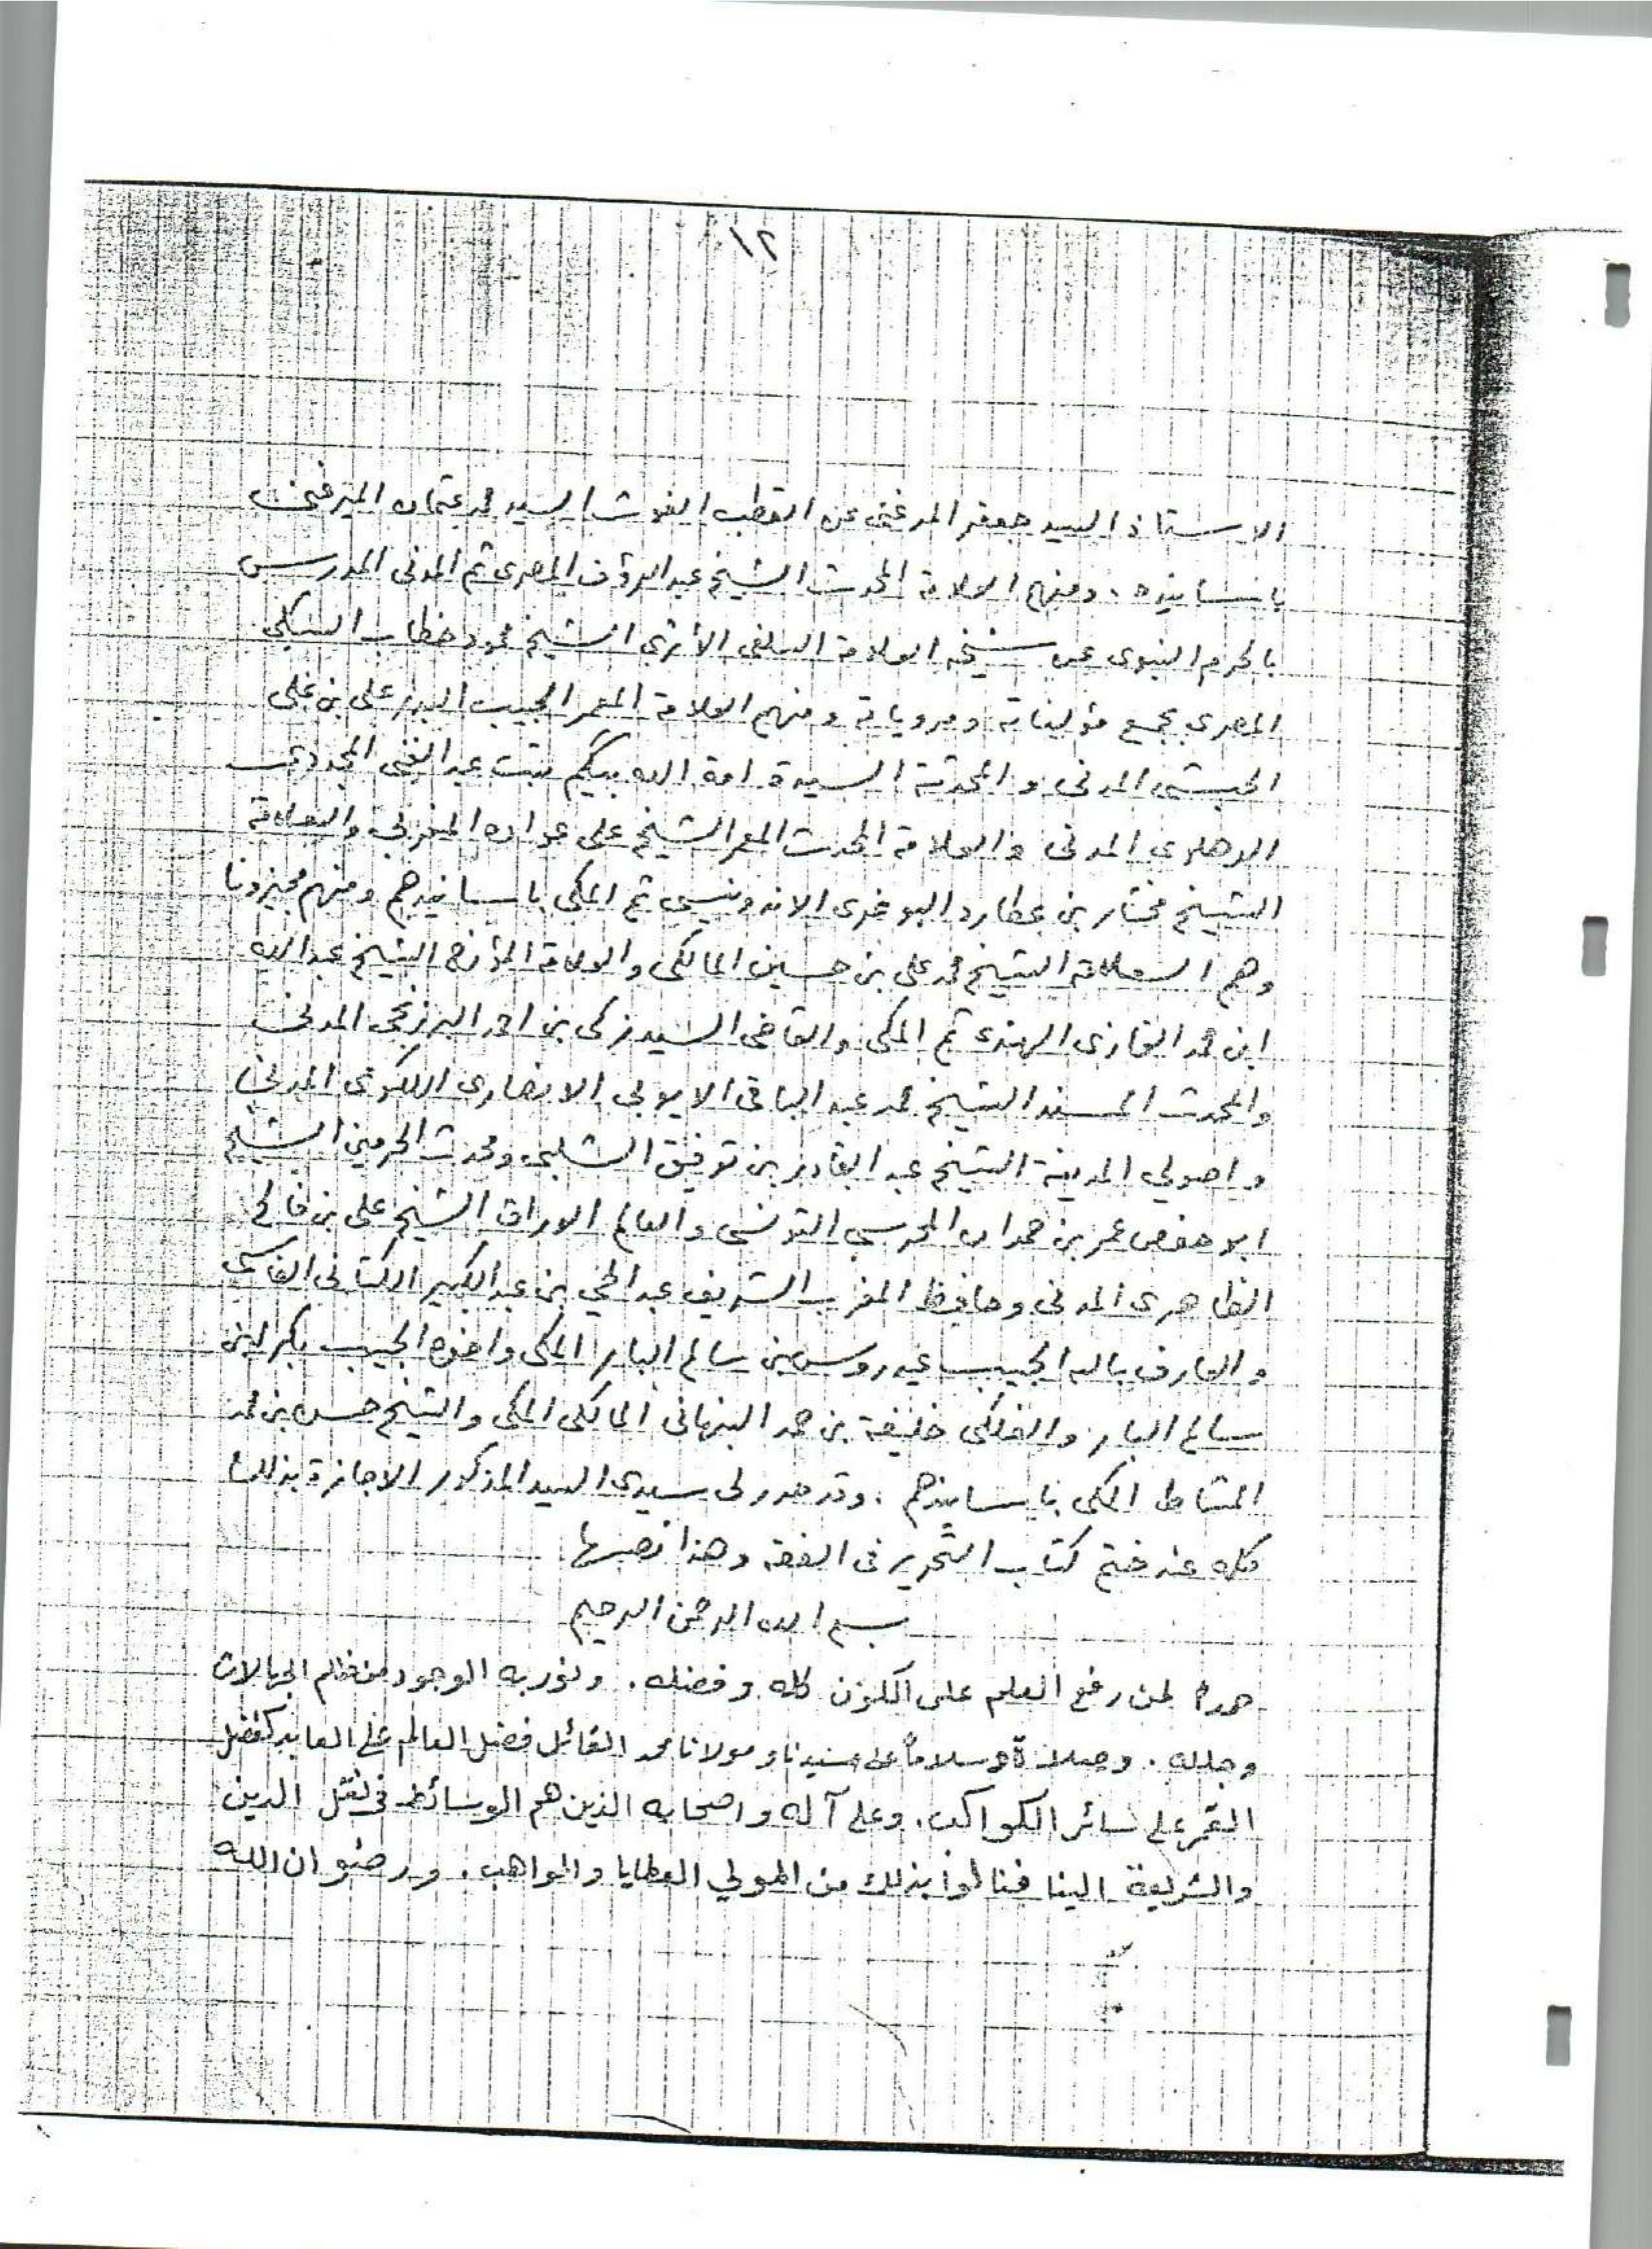 ١٢
الاستاذ السيد جعفر المرغني عن القطب الغوث السيد محمد عثمان الميرغني
باسانيده . ومنهم العلامة المحدث الشيخ عبد الرؤف المصرى ثم المدنى المدرس
بالحرم النبوى عن شيخه العلامة السلفى الأثرى الشيخ محمود خطاب السبكى
المصرى بجمع مؤلفاته ومروياته ومنهم العلامة المعمر الحبيب السيد على بن على
الحبشى المدنى و المحدثة السيدة امة الله بيكم بنت عبد الغنى المجددى
الدهلوى المدنى والعلامة المحدث المعمر الشيخ على عواده المغربى والعلامة
الشيخ مختار بن عطارد البوغرى الاندونيسى ثم المكى باسانيدهم ومنهم مجيزونا
وهم العلامة الشيخ محمد على بن حسين المالكى والعلامة المؤرخ الشيخ عبد الله
ابن محمد الغازى الهندى ثم المكى والقاضى السيد زكى بن احمد البرزنجى المدنى
والمحدث المسند الشيخ محمد عبد الباقى الايوبى الانصارى اللكنوى المدنى
و اصولي المدينة الشيخ عبد القادر بن توفيق الشلبى ومحدث الحرمين الشيخ
ابو حفص عمر بن حمدان المحرسى التونسى والعالم الوراق الشيخ على بن فالح
الظاهرى المدنى وحافظ المغرب الشريف عبد الحي بن عبد الكبير الكتانى الفاسى
والعارف بالله الحبيب عيدروس بن سالم البار المكى واخوه الحبيب بكر ابن
سالم البار والفلكى خليفة بن حمد النبهانى المالكى المكى والشيخ حسن بن محمد
المشاط المكى باسانيدهم . وقد صدر لى سيدى السيد المذكور الاجازة بذلك
كله عند ختم كتاب التحرير فى الفقه وهذا نصها
بسم الله الرحمن الرحيم
حمدا لمن رفع العلم على الكون كله وفضله . ونور به الوجود من ظلم الجهالات
وجلله . وصلاة وسلاماً على سيدنا ومولانا محمد القائل فضل العالم على العابد كفضل
القمر على سائر الكواكب . وعلى آله واصحابه الذين هم الوسائط فى نقل الدين
والشريعة الينا فنالوا بذلك من المولي العطايا والمواهب . ورضوان الله